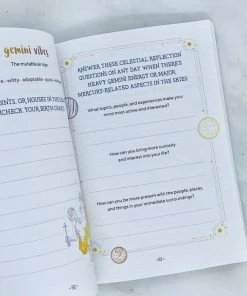 gemini vibes
The mutable air sign
witty · adaptable ·
OINTS, OR HOUSES IN THE
CHECK YOUR BIRTH CHART
-52-
ANSWER THESE CELESTIAL REFLECTION
QUESTIONS ON ANY DAY WHEN THERE'S
HEAVY GEMINI ENERGY OR MAJOR
MERCURY-RELATED ASPECTS IN THE SKIES:
What topics, people, and experiences make your
mind most active and interested?
How can you bring more curiosity
and interest into your life?
How can you be more present with the people, places,
and things in your immediate surroundings?
-53-